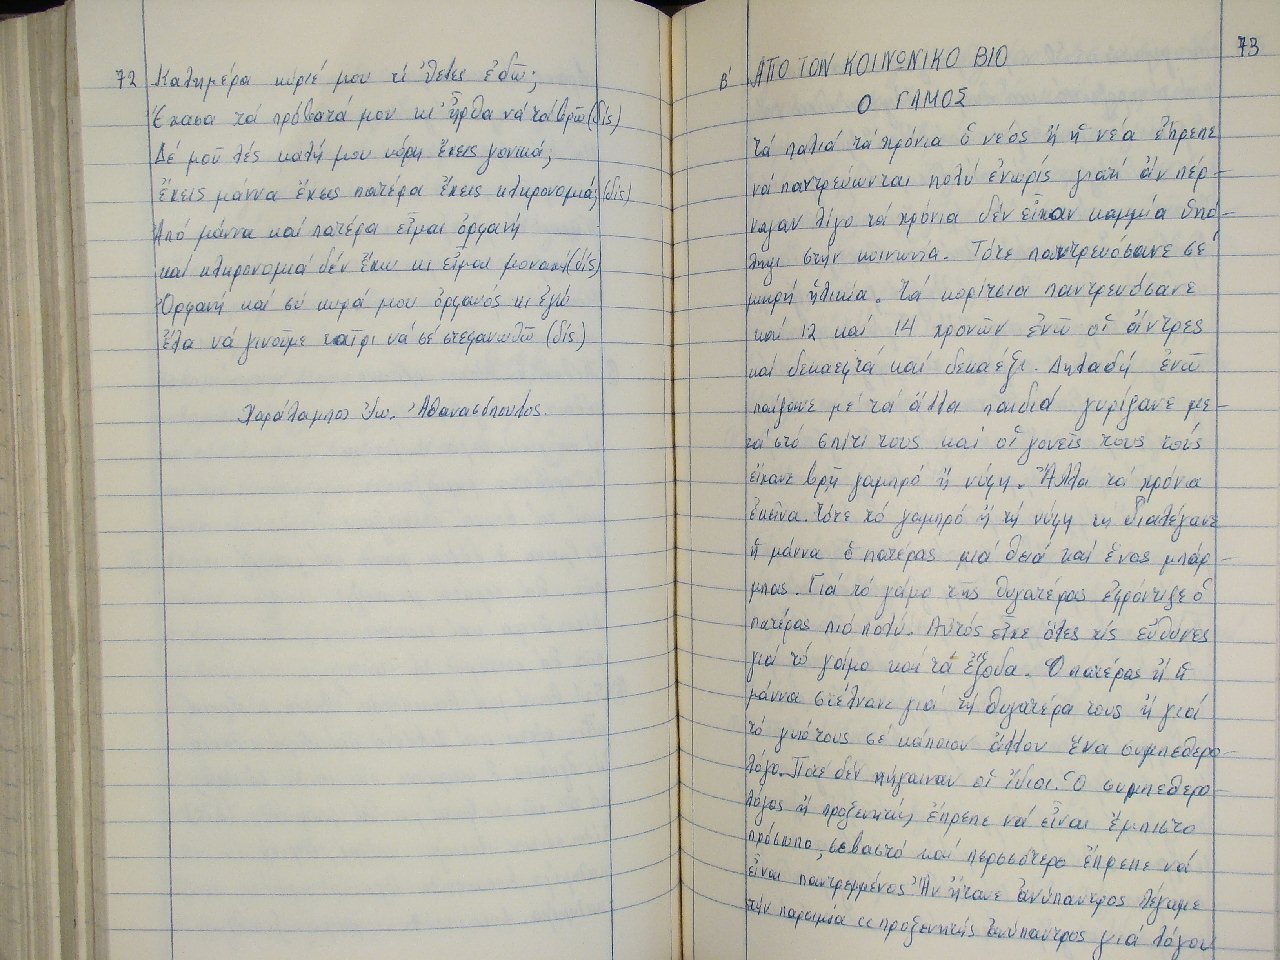 72
Καλημέρα κύριέ μου τί θέλεις ἐδῶ;
Ἔχασα τά πρόβατά μου κι' ἦρθα νά τά βρῶ (δίς)
Δέ μοῦ λές καλή μου κόρη ἔχεις γονικά;
ἔχεις μάννα ἔχεις πατέρα ἔχεις κληρονομιά; (δίς)
Ἀπό μάννα καί πατέρα εἶμαι ὀρφανή
καί κληρονομιά δέν ἔχω κι εἶμαι μοναχή (δίς)
Ὀρφανή καί σύ κυρά μου ὀρφανός κι ἐγώ
ἔλα νά γινοῦμε ταῖρι νά σέ στεφανωθῶ (δίς)
Χαράλαμπος Ἰω. Ἀθανασόπουλος.
73
Β' ΑΠΟ ΤΟΝ ΚΟΙΝΩΝΙΚΟ ΒΙΟ
Ο ΓΑΜΟΣ
τά παλιά τά χρόνια ὁ νέος ἤ ἡ νέα ἔπρεπε
νά παντρεύωνται πολύ ἐνωρίς γιατί ἄν πέρ-
ναγαν λίγο τά χρόνια δέν εἶχαν καμμία ὑπό-
ληψι στήν κοινωνία. Τότε παντρευόσανε σέ
μικρή ἡλικία. τά κορίτσια παντρευόσανε
καί 12 καί 14 χρονῶν ἐνῶ οἱ ἄντρες
καί δεκαεφτά καί δεκαέξι. Δηλαδή ἐνῶ
παίζανε μέ τά ἄλλα παιδιά γυρίζανε με-
τά στό σπίτι τους καί οἱ γονεῖς τους τούς
εἴχανε βρῆ γαμπρό ἤ νύφη. Ἄλλα τά χρόνια
ἐκεῖνα. τότε τό γαμπρό ἤ τή νύφη τή διαλέγανε
ἡ μάννα ὁ πατέρας μιά θειά καί ἕνας μπάρ-
μπας. Γιά τό γάμο τῆς θυγατέρας ἐφρόντιζε ὁ
πατέρας πιό πολύ. Αὐτός εἶχε ὅλες τίς εὐθύνες
γιά τό γάμο καί τά ἔξοδα. Ὁ πατέρας ἤ ἡ
μάννα στέλνανε γιά τή θυγατέρα τους ἤ γιά
τό γυιό τους σέ κάποιον ἄλλον ἕνα συμπεθερο-
λόγο. Ποτέ δέν πήγαιναν οἱ ἴδιοι. Ὁ συμπεθερο-
λόγος ἤ προξενητής ἔπρεπε νά εἶναι ἔμπιστο
πρόσωπο, σεβαστό καί περσσότερο ἔπρεπε νά
εἶναι παντρεμμένος. Ἄν ἤτανε ἀνύπαντρος λέγαμε
τήν παροιμία " προξενητής ἀνύπαντρος γιά λόγου